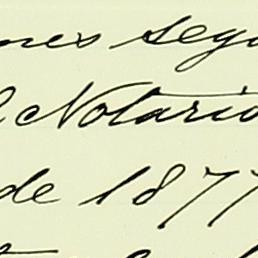 nes segu
l Notario
de 1877